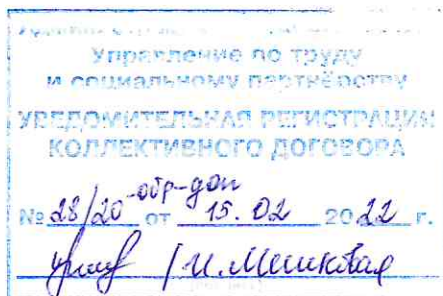 Управление по труду
и социальному партнёрству
УВЕДОМИТЕЛЬНАЯ РЕГИСТРАЦИЯ
КОЛЛЕКТИВНОГО ДОГОВОРА
№ 28/20-обр-доп от 15.02 2022 г.
/ И.